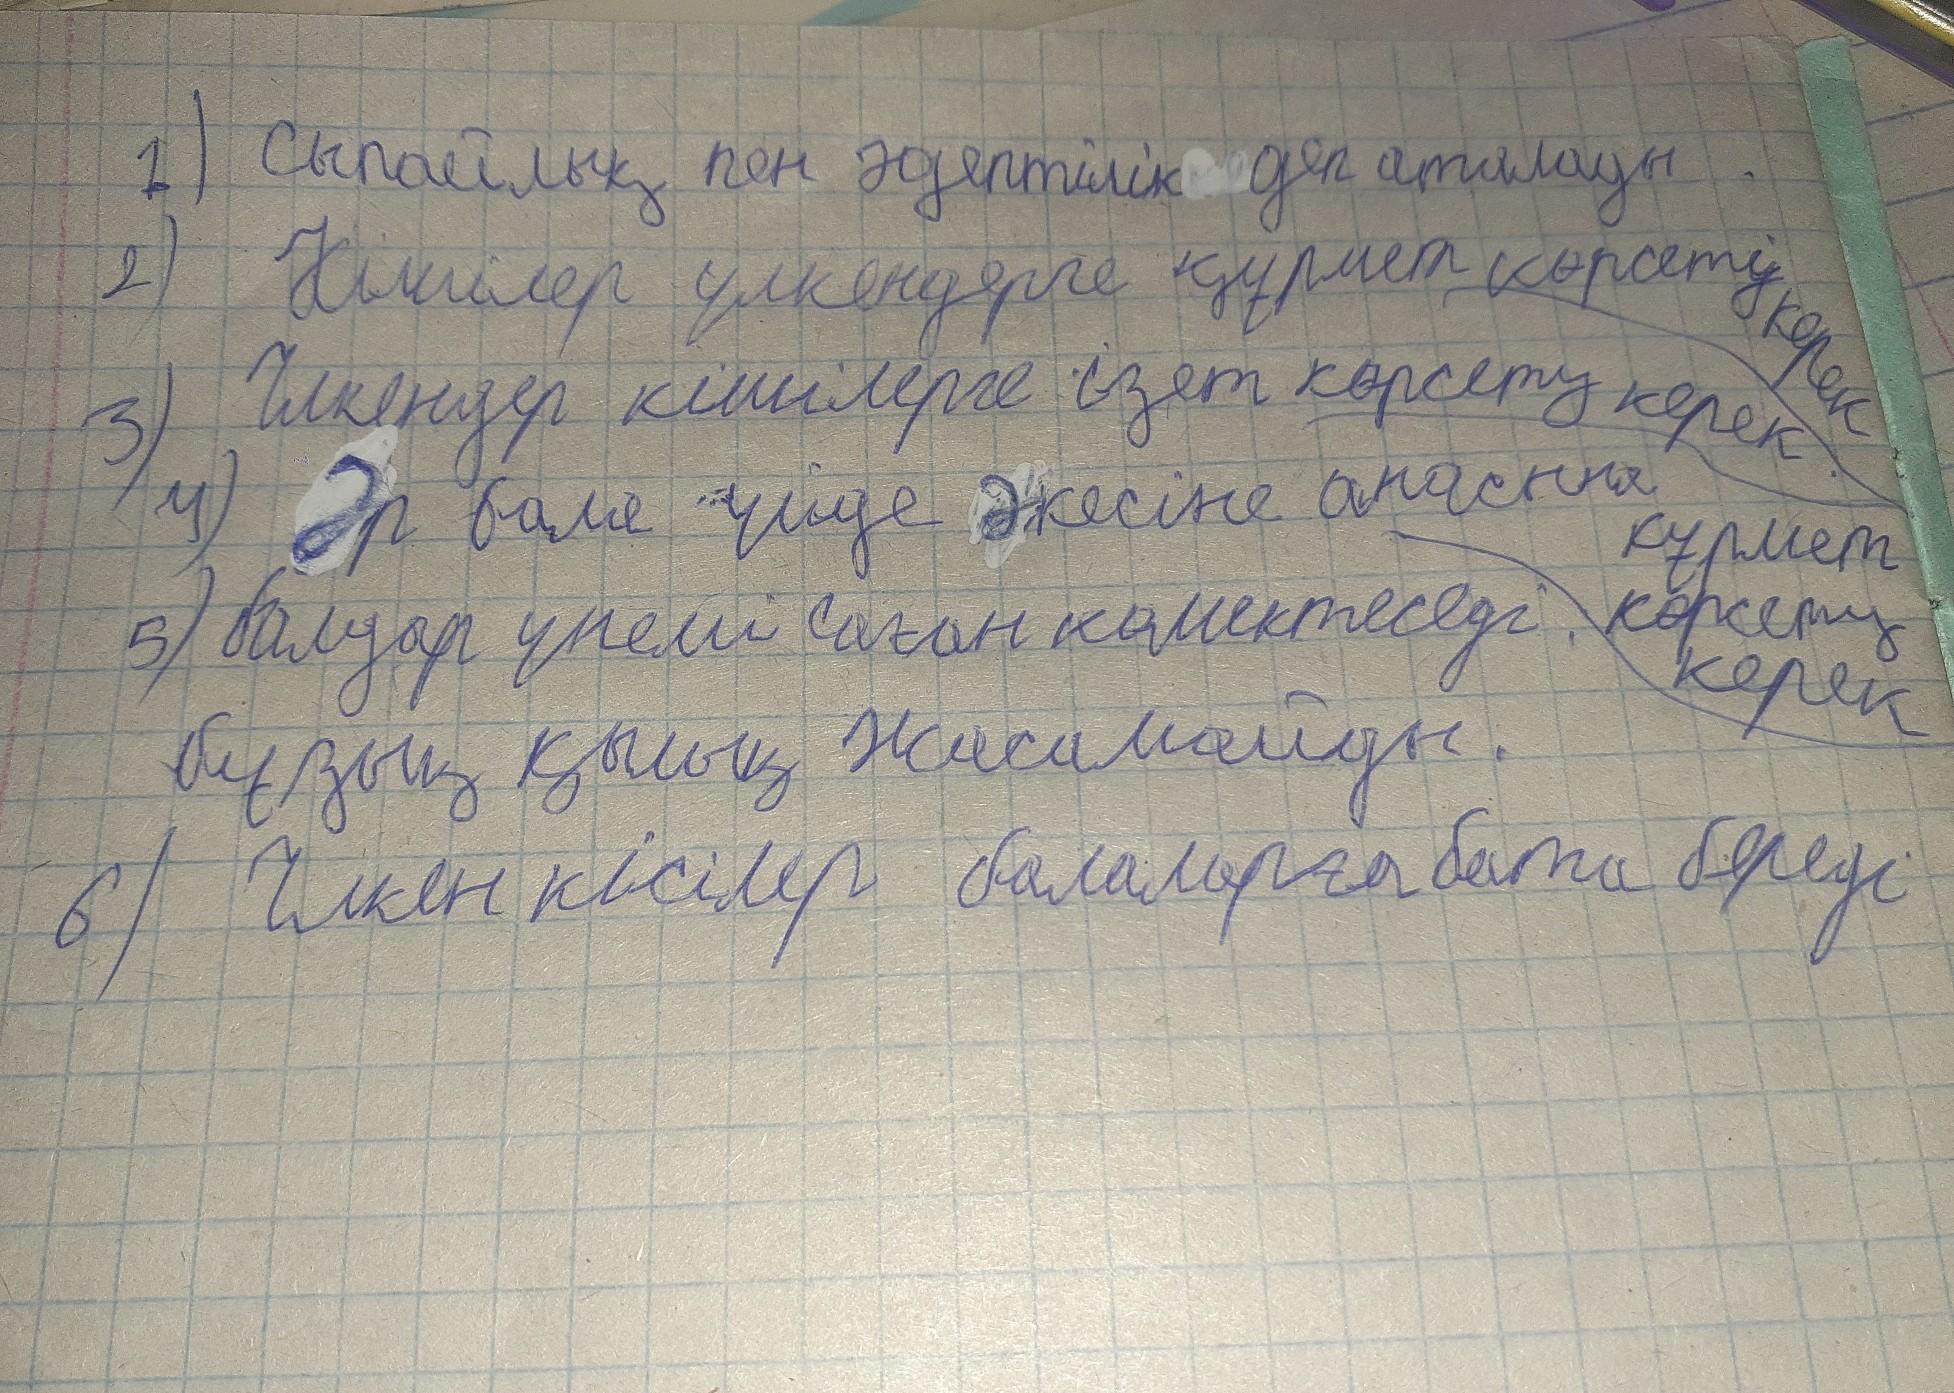 1) Сыпайлық пен әдептілік деп аталады.
2) Кішілер үлкендерге құрмет көрсету керек
3) Үлкендер кішілерге ізет көрсету керек.
4) Әр бала үйде әкесіне анасына құрмет көрсету керек
5) балдар үнемі саған көмектеседі.
бұзық қылық жасамайды.
6) Үлкен кісілер балаларға бата береді